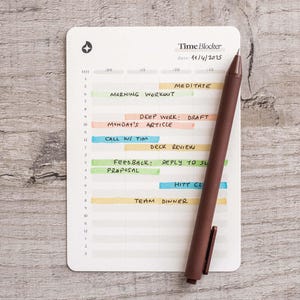 Time Blocker
date: 11/4/2025
MEDITATE
MORNING WORKOUT
DEEP WORK: DRAFT
MONDAY'S ARTICLE
CALL W/ TIM
DECK REVIEW
FEEDBACK: REPLY TO
PROPOSAL
HITT
TEAM DINNER